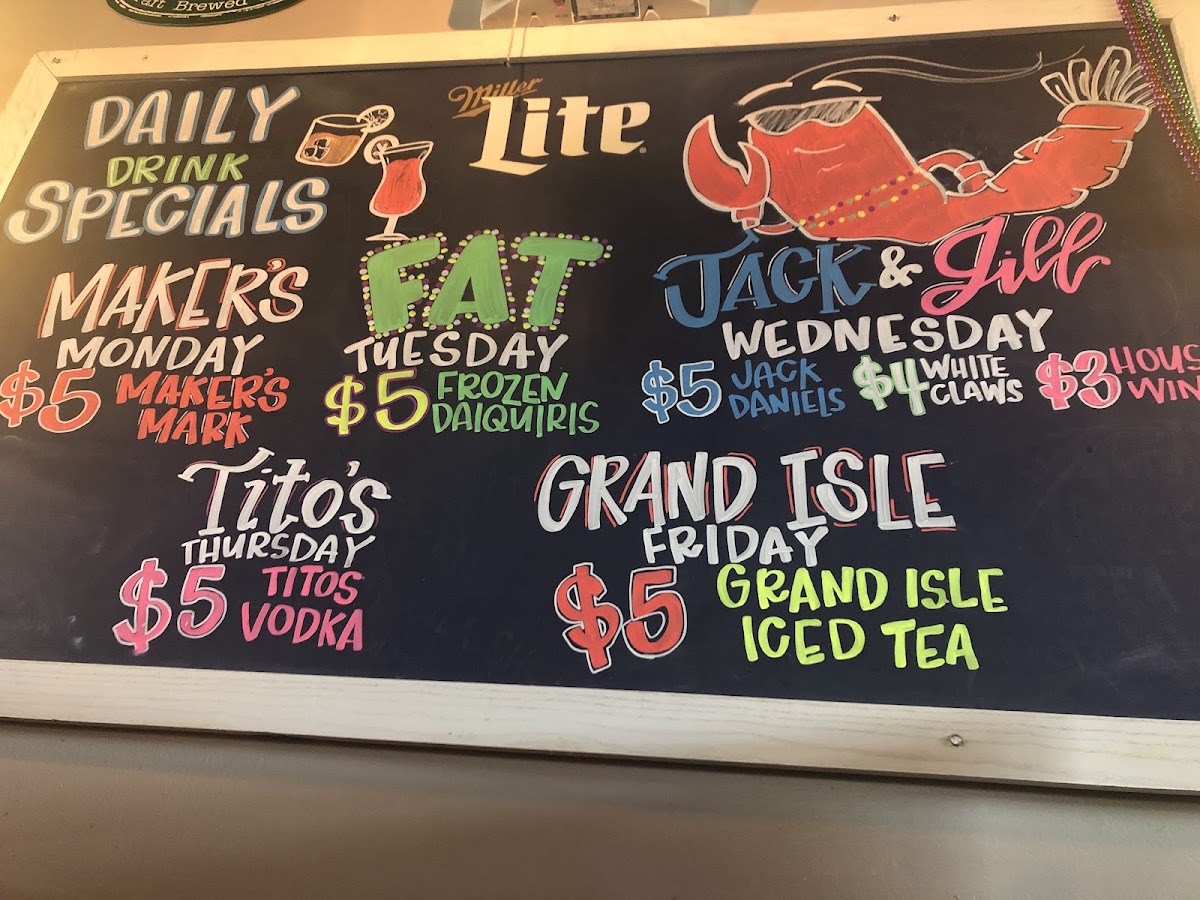 Craft Brewed
DAILY
DRINK
SPECIALS
Miller
Lite
MAKER'S
MONDAY
$5 MAKER'S
MARK
FAT
TUESDAY
$5 FROZEN
DAIQUIRIS
JACK & Jill
WEDNESDAY
$5 JACK
DANIELS
$4 WHITE
CLAWS
$3 HOUS
WIN
Tito's
THURSDAY
$5 TITOS
VODKA
GRAND ISLE
FRIDAY
$5 GRAND ISLE
ICED TEA